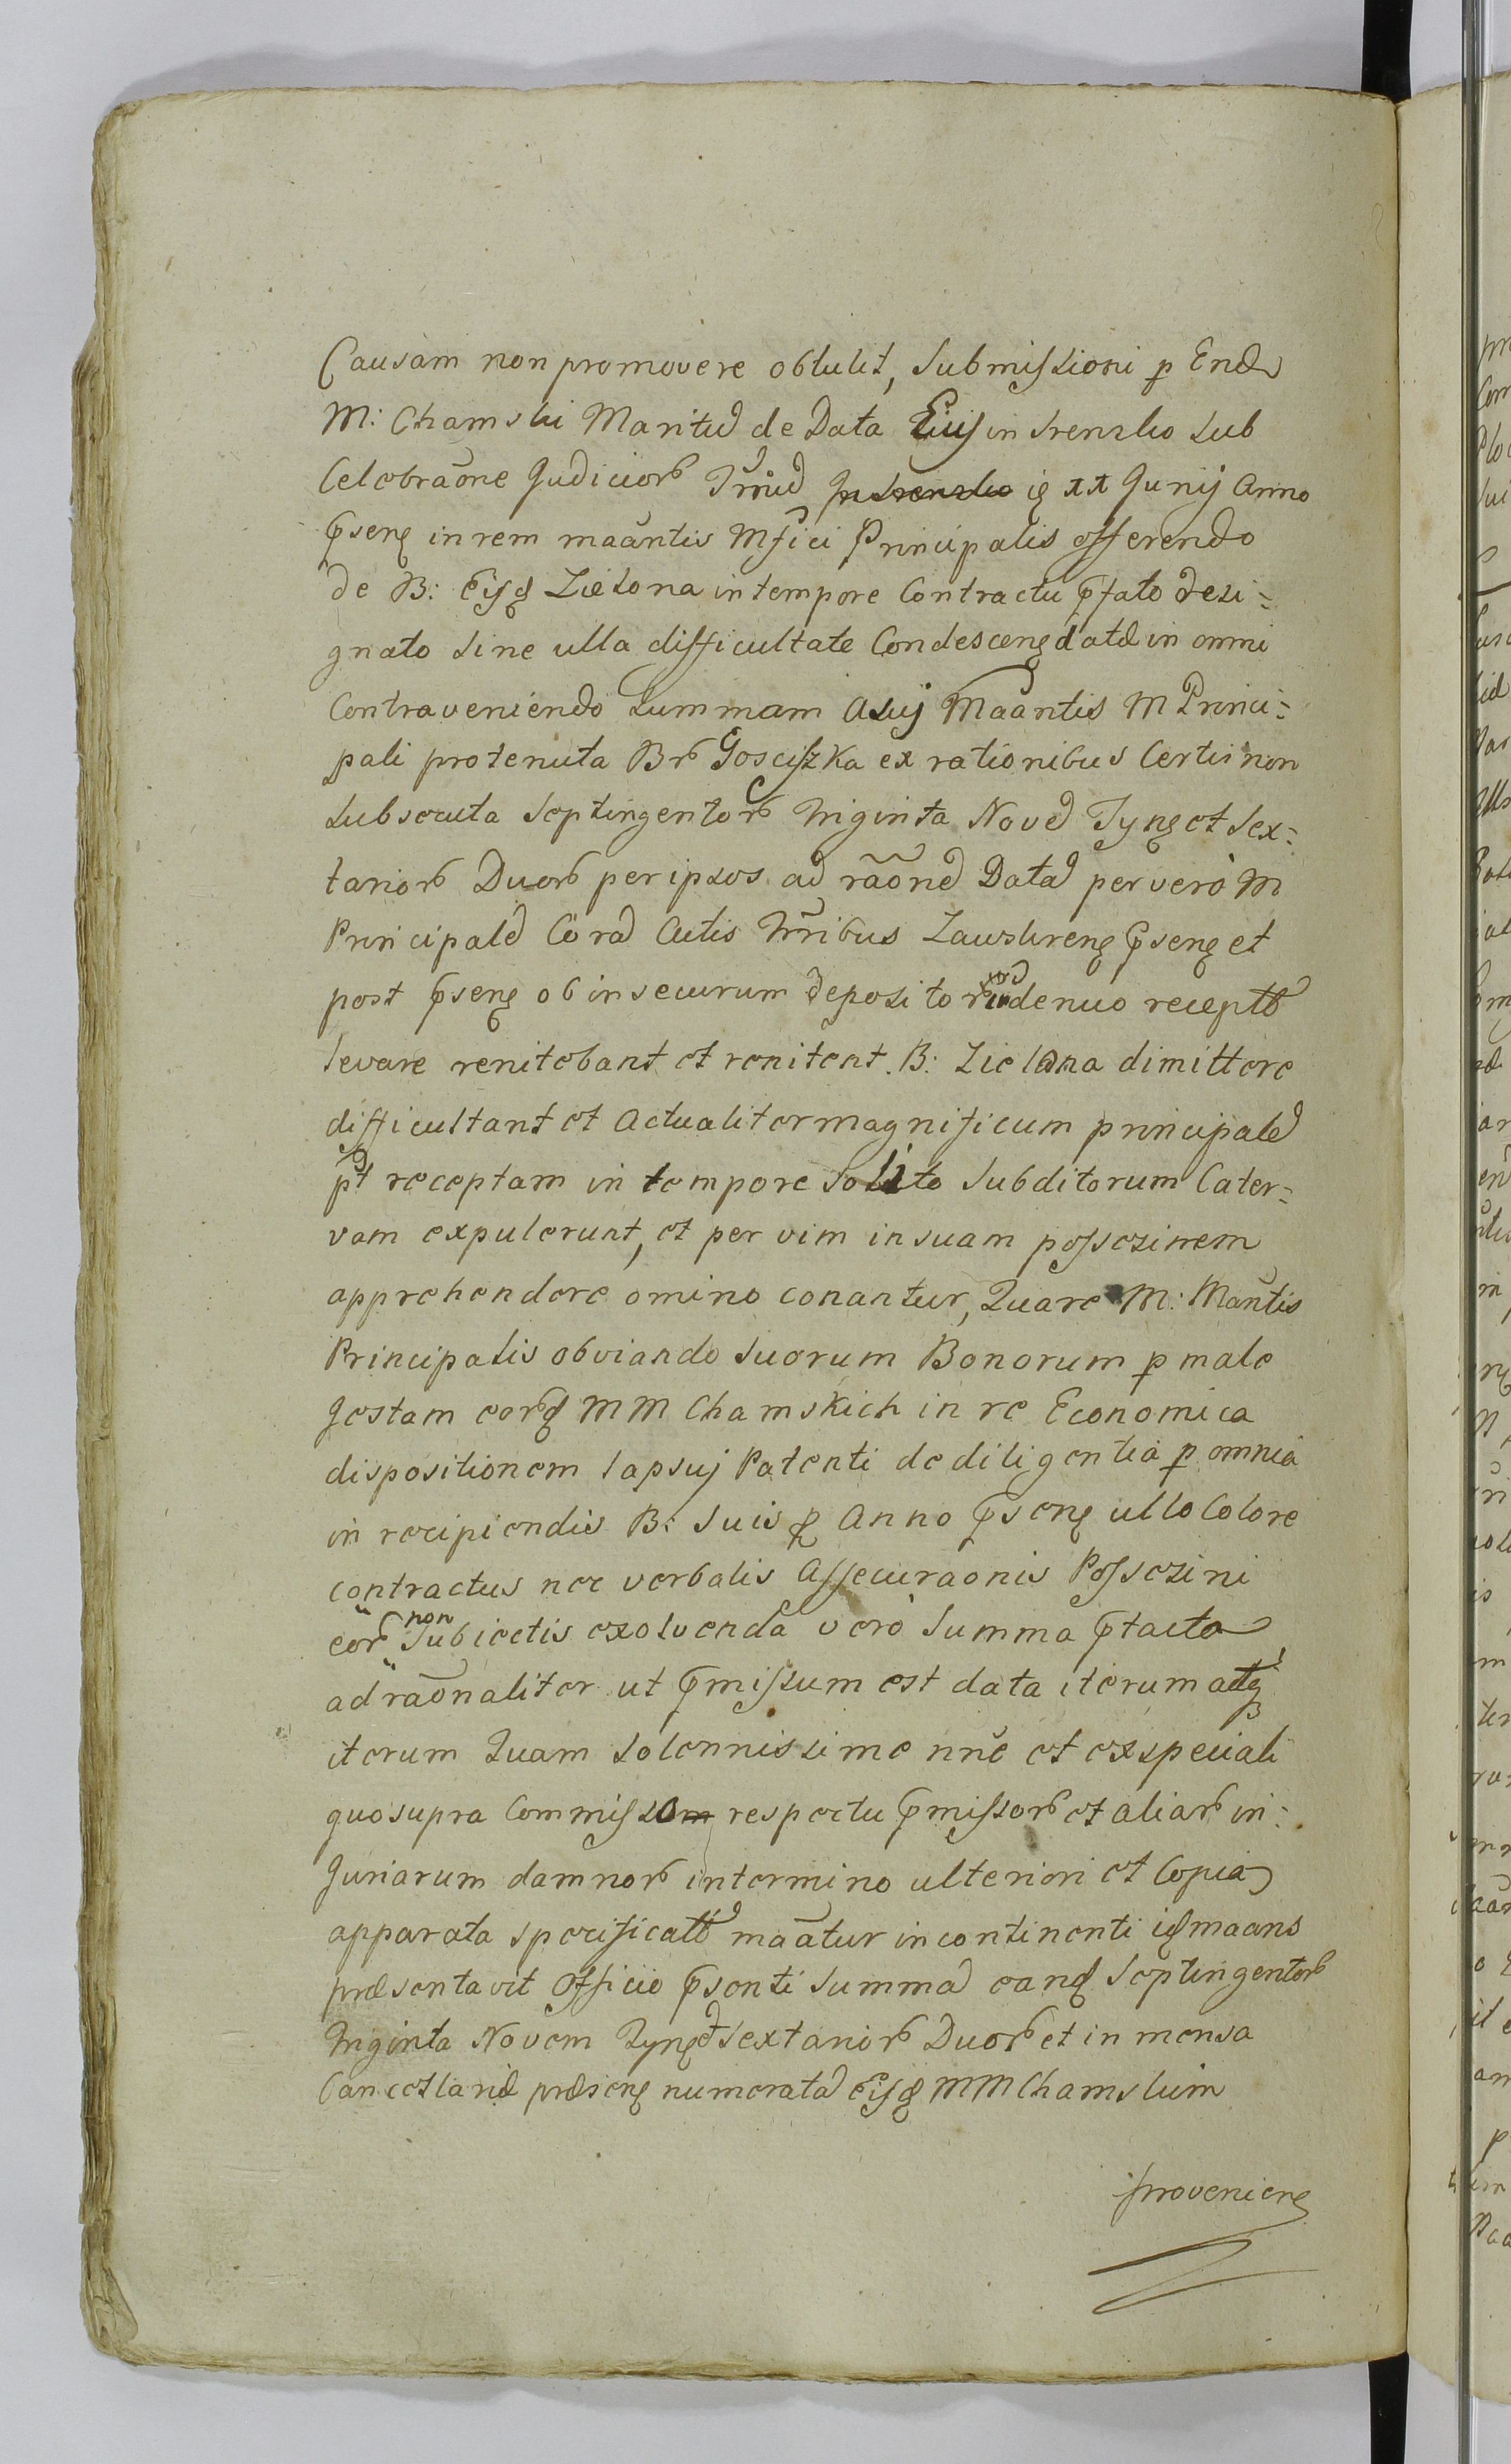 Causam non promovere obtulit, submissioni p End
M: Chamski Maritũ de Data Eiusj in Srensko sub
Celebraõne Judiciorῢ Trniũ iꝗ xx Junij Anno
pseng in rem maantis Mfici Principalis offerendo
de B: Eisꝗ Zielona in tempore Contractu pfato desi=
gnato sine ulla difficultate Condesceng datẽ in omni
Contraveniendo summam Maantis M Princi=
pali pro tenuta Brῢ Gosciszka ex rationibus Certis non
subsecuta septingentorῢ triginta Novẽ Tyng et sex=
tariorῢ Duorῢ per ipsos ad raõnẽ Datã per verò M
Principalẽ Corã Actis pseng et
post pseng ob insecurum deposito denuo recept
levare renitebant et renitent. B: Zielona dimittere
difficultant et Actualiter magnificum principalẽ
pt receptam in tempore solito subditorum Cater=
vam expulerunt, et per vim in suam possesinem
apprehendere omino conantur, Quare M: Mantis
Principalis obviando suorum Bonorum p male
gestam eorꝗ MM Chamskich in re Economica
dispositionem lapsuj Patenti de diligentia p omnia
in recipiendis B: suis Anno pseng ullo Colore
contractus nec verbalis Assecuraonis Possesini
eorῢ non subiectis exolvenda verò summa ptacta
ad raõnaliter ut pmissum est data iterum atqꝫ
iterum Quam solennissime nne et ex speciali
quo supra Commisso respectu pmissorῢ et aliarῢ in=
juriarum damnorῢ in termino ulteriori et Copia
apparata specificat maãtur in continenti iꝗ maans
præsentavit Officio psenti summã eanꝗ septingentorῢ
triginta Novem Tyng et sextariorῢ Duorῢ et in mensa
Cancellariæ præseng numeratã Eisꝗ MM Chamskim
proveniens